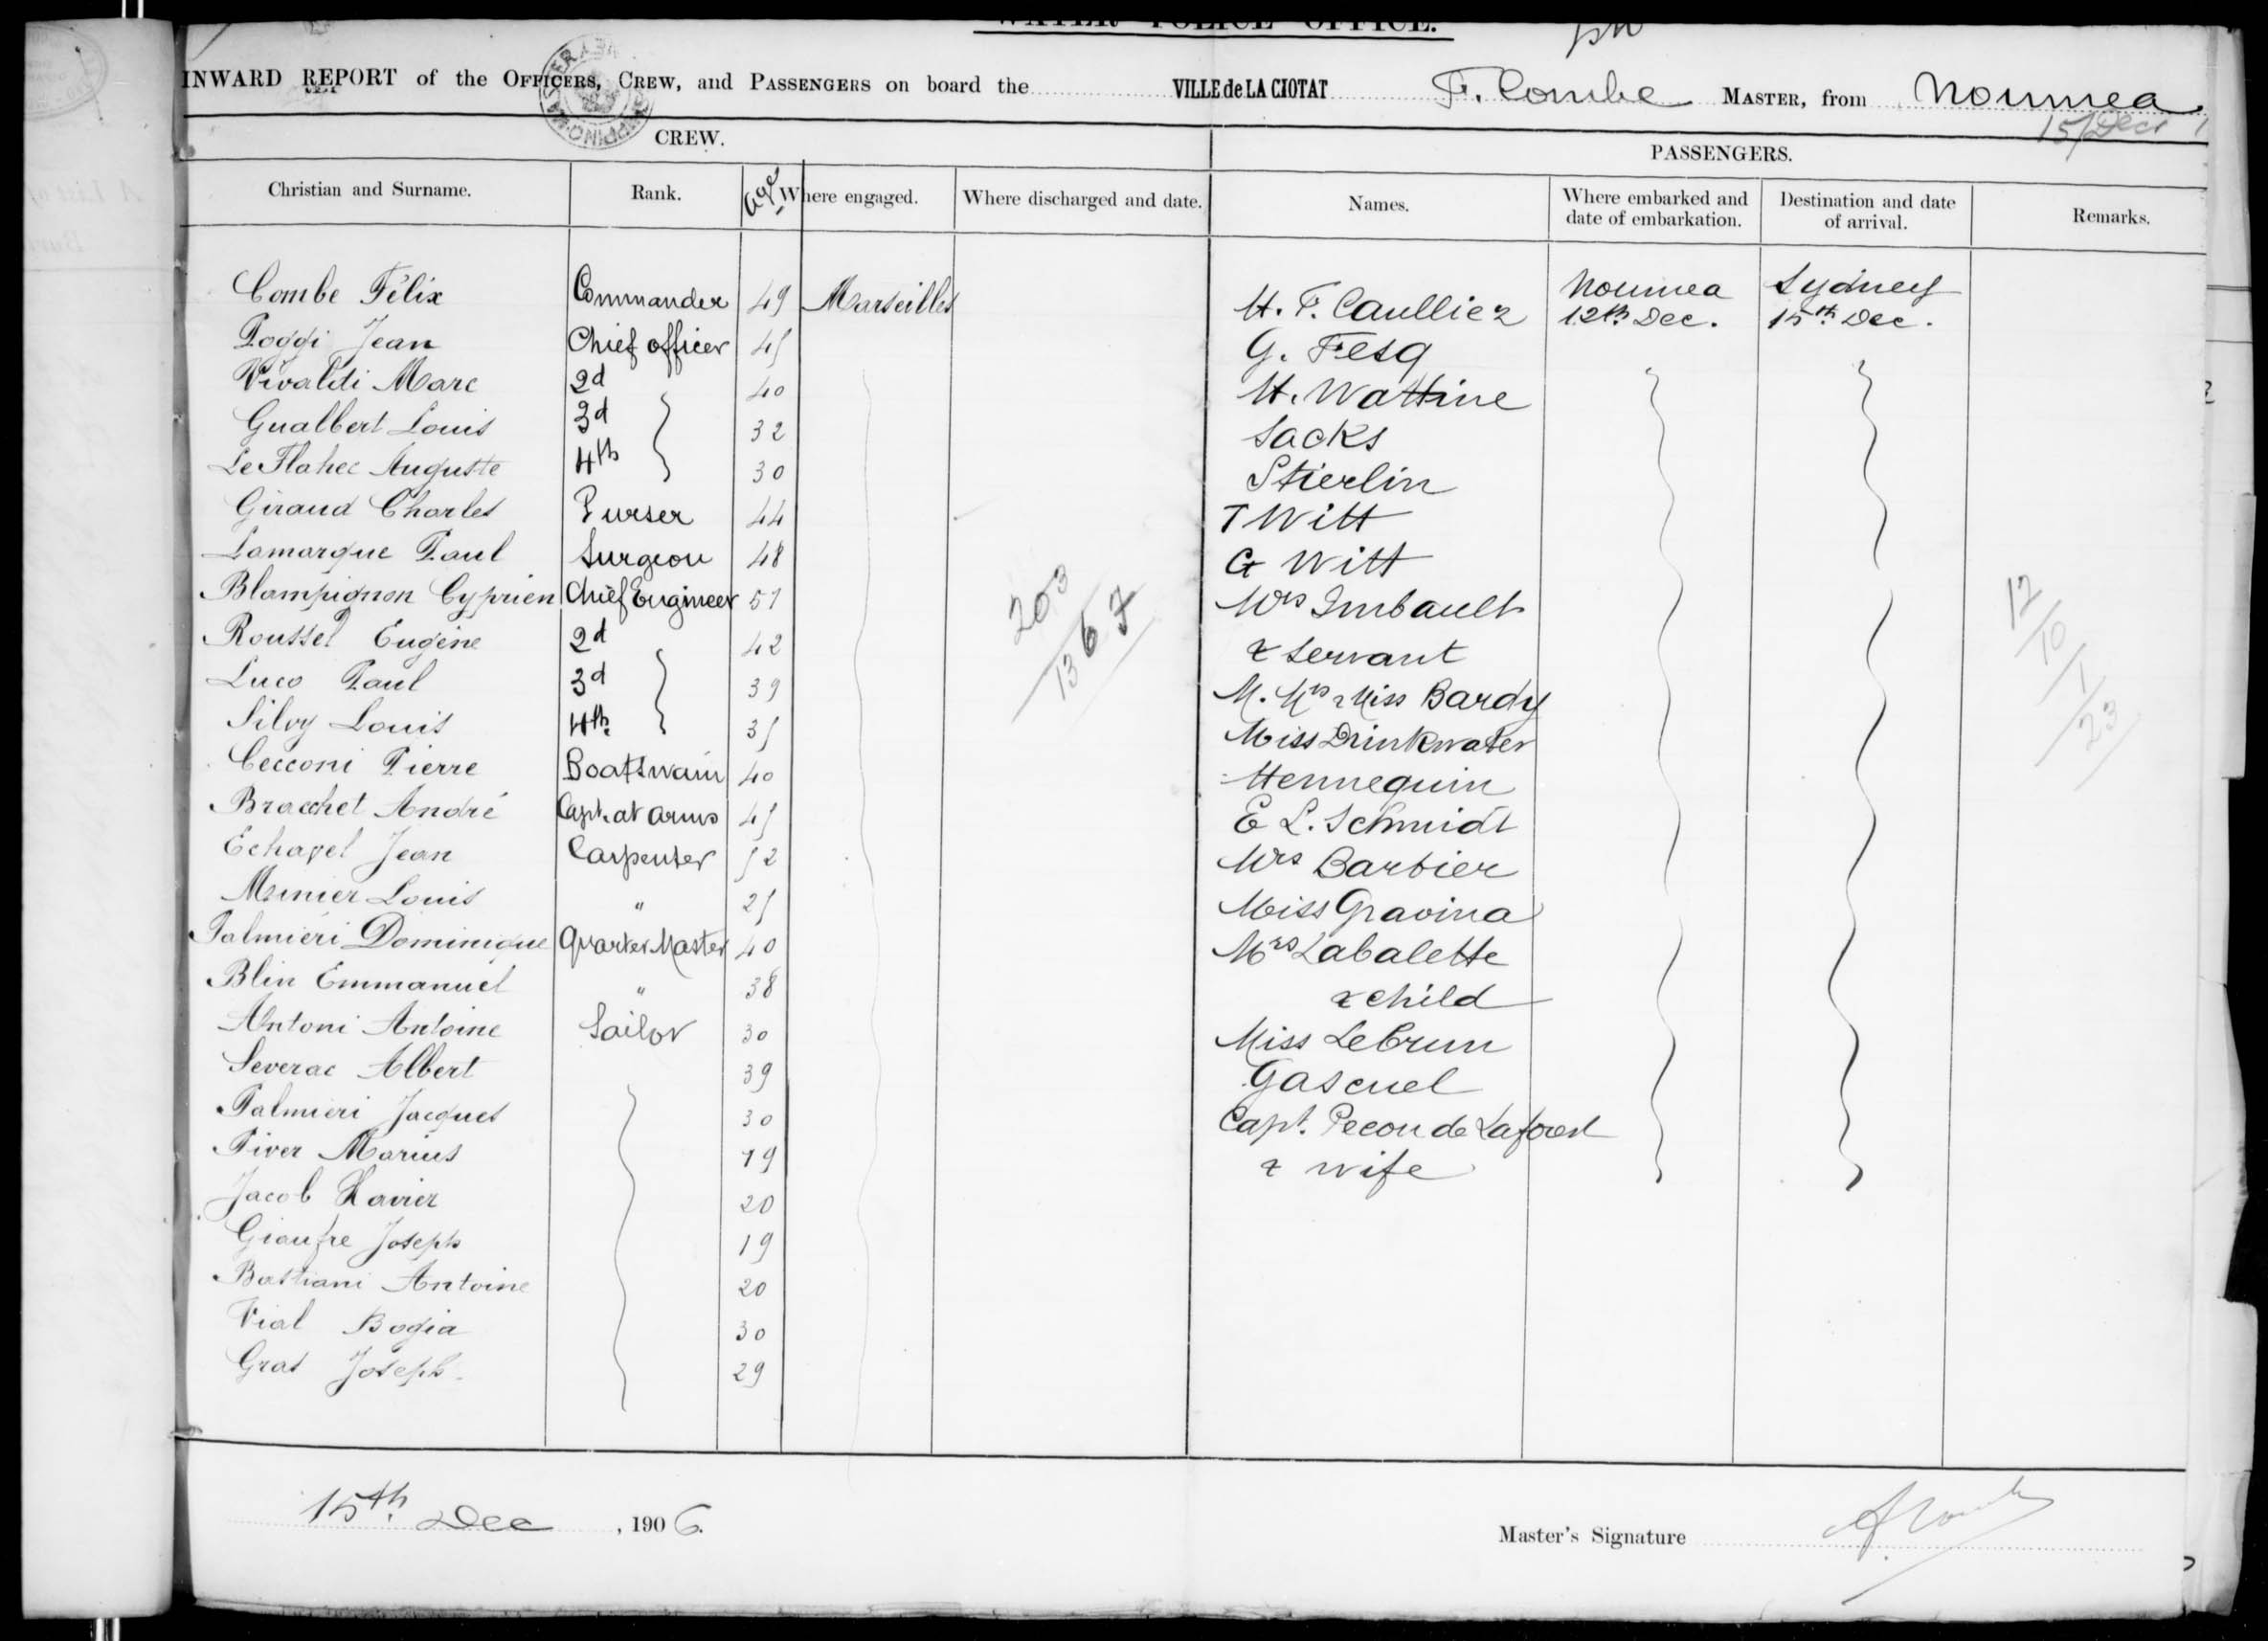 WATER POLICE OFFICE.
INWARD REPORT of the OFFICERS, CREW, and PASSENGERS on board the VILLE de LA CIOTAT F. Combe MASTER, from Noumea
15/Decr
CREW.
PASSENGERS.
Christian and Surname. Rank. Age Where engaged. Where discharged and date. Names. Where embarked and date of embarkation. Destination and date of arrival. Remarks.
Combe Félix Commander 49 Marseilles
Poggi Jean Chief officer 45
Vivaldi Marc 2d 40
Gualbert Louis 3d 32
Le Flahec Auguste 4th 30
Giraud Charles Purser 44
Lamarque Paul Surgeon 48
Blampignon Cyprien Chief Engineer 51
Roussel Eugène 2d 42
Luco Paul 3d 39
Silvy Louis 4th 35
Cecconi Pierre Boatswain 40
Bracchet André Capt. at arms 45
Echapel Jean Carpenter 52
Munier Louis " 25
Palmieri Dominique Quarter Master 40
Blin Emmanuel " 38
Antoni Antoine Sailor 30
Severac Albert 39
Palmieri Jacques 30
Piver Marius 19
Jacob Xavier 20
Giaufre Joseph 19
Bastiani Antoine 20
Vial Bogia 30
Gras Joseph 29
203
1367
H. F. Caulliez Noumea 12th Dec. Sydney 15th Dec.
G. Fesq
H. Wattine
Sacks
Stierlin
T Witt
G Witt
Mrs Imbault
& servant
M. Mrs & Miss Bardy
Miss Drinkwater
Hennequin
E L. Schmidt
Mrs Barbier
Miss Gravina
Mrs Labalette
& child
Miss Lebrun
Gascuel
Capt. Pecon de Laforest
& wife
12
10
1
23
15th Dec, 1906.
Master's Signature